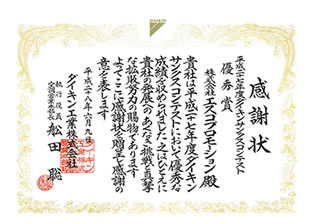 感謝状
平成二十七年度ダイキンサンクスコンテスト
優秀賞
株式会社エスコプロモーション殿
貴社は平成二十七年度ダイキン
サンクスコンテストにおいて優秀な
成績を収められましたこれはひとえに
貴社の発展へのあくなき挑戦と真摯
な拡販努力の賜物であります
よってここに感謝状を贈呈し感謝の
意を表します
平成二十八年六月九日
ダイキン工業株式会社
執行役員
空調営業本部長 舩田聡